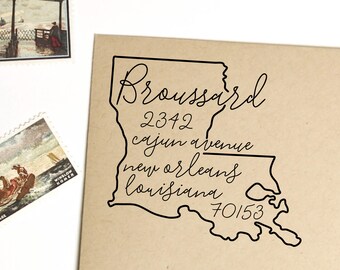 Broussard
2342
cajun avenue
new orleans
louisiana
70153